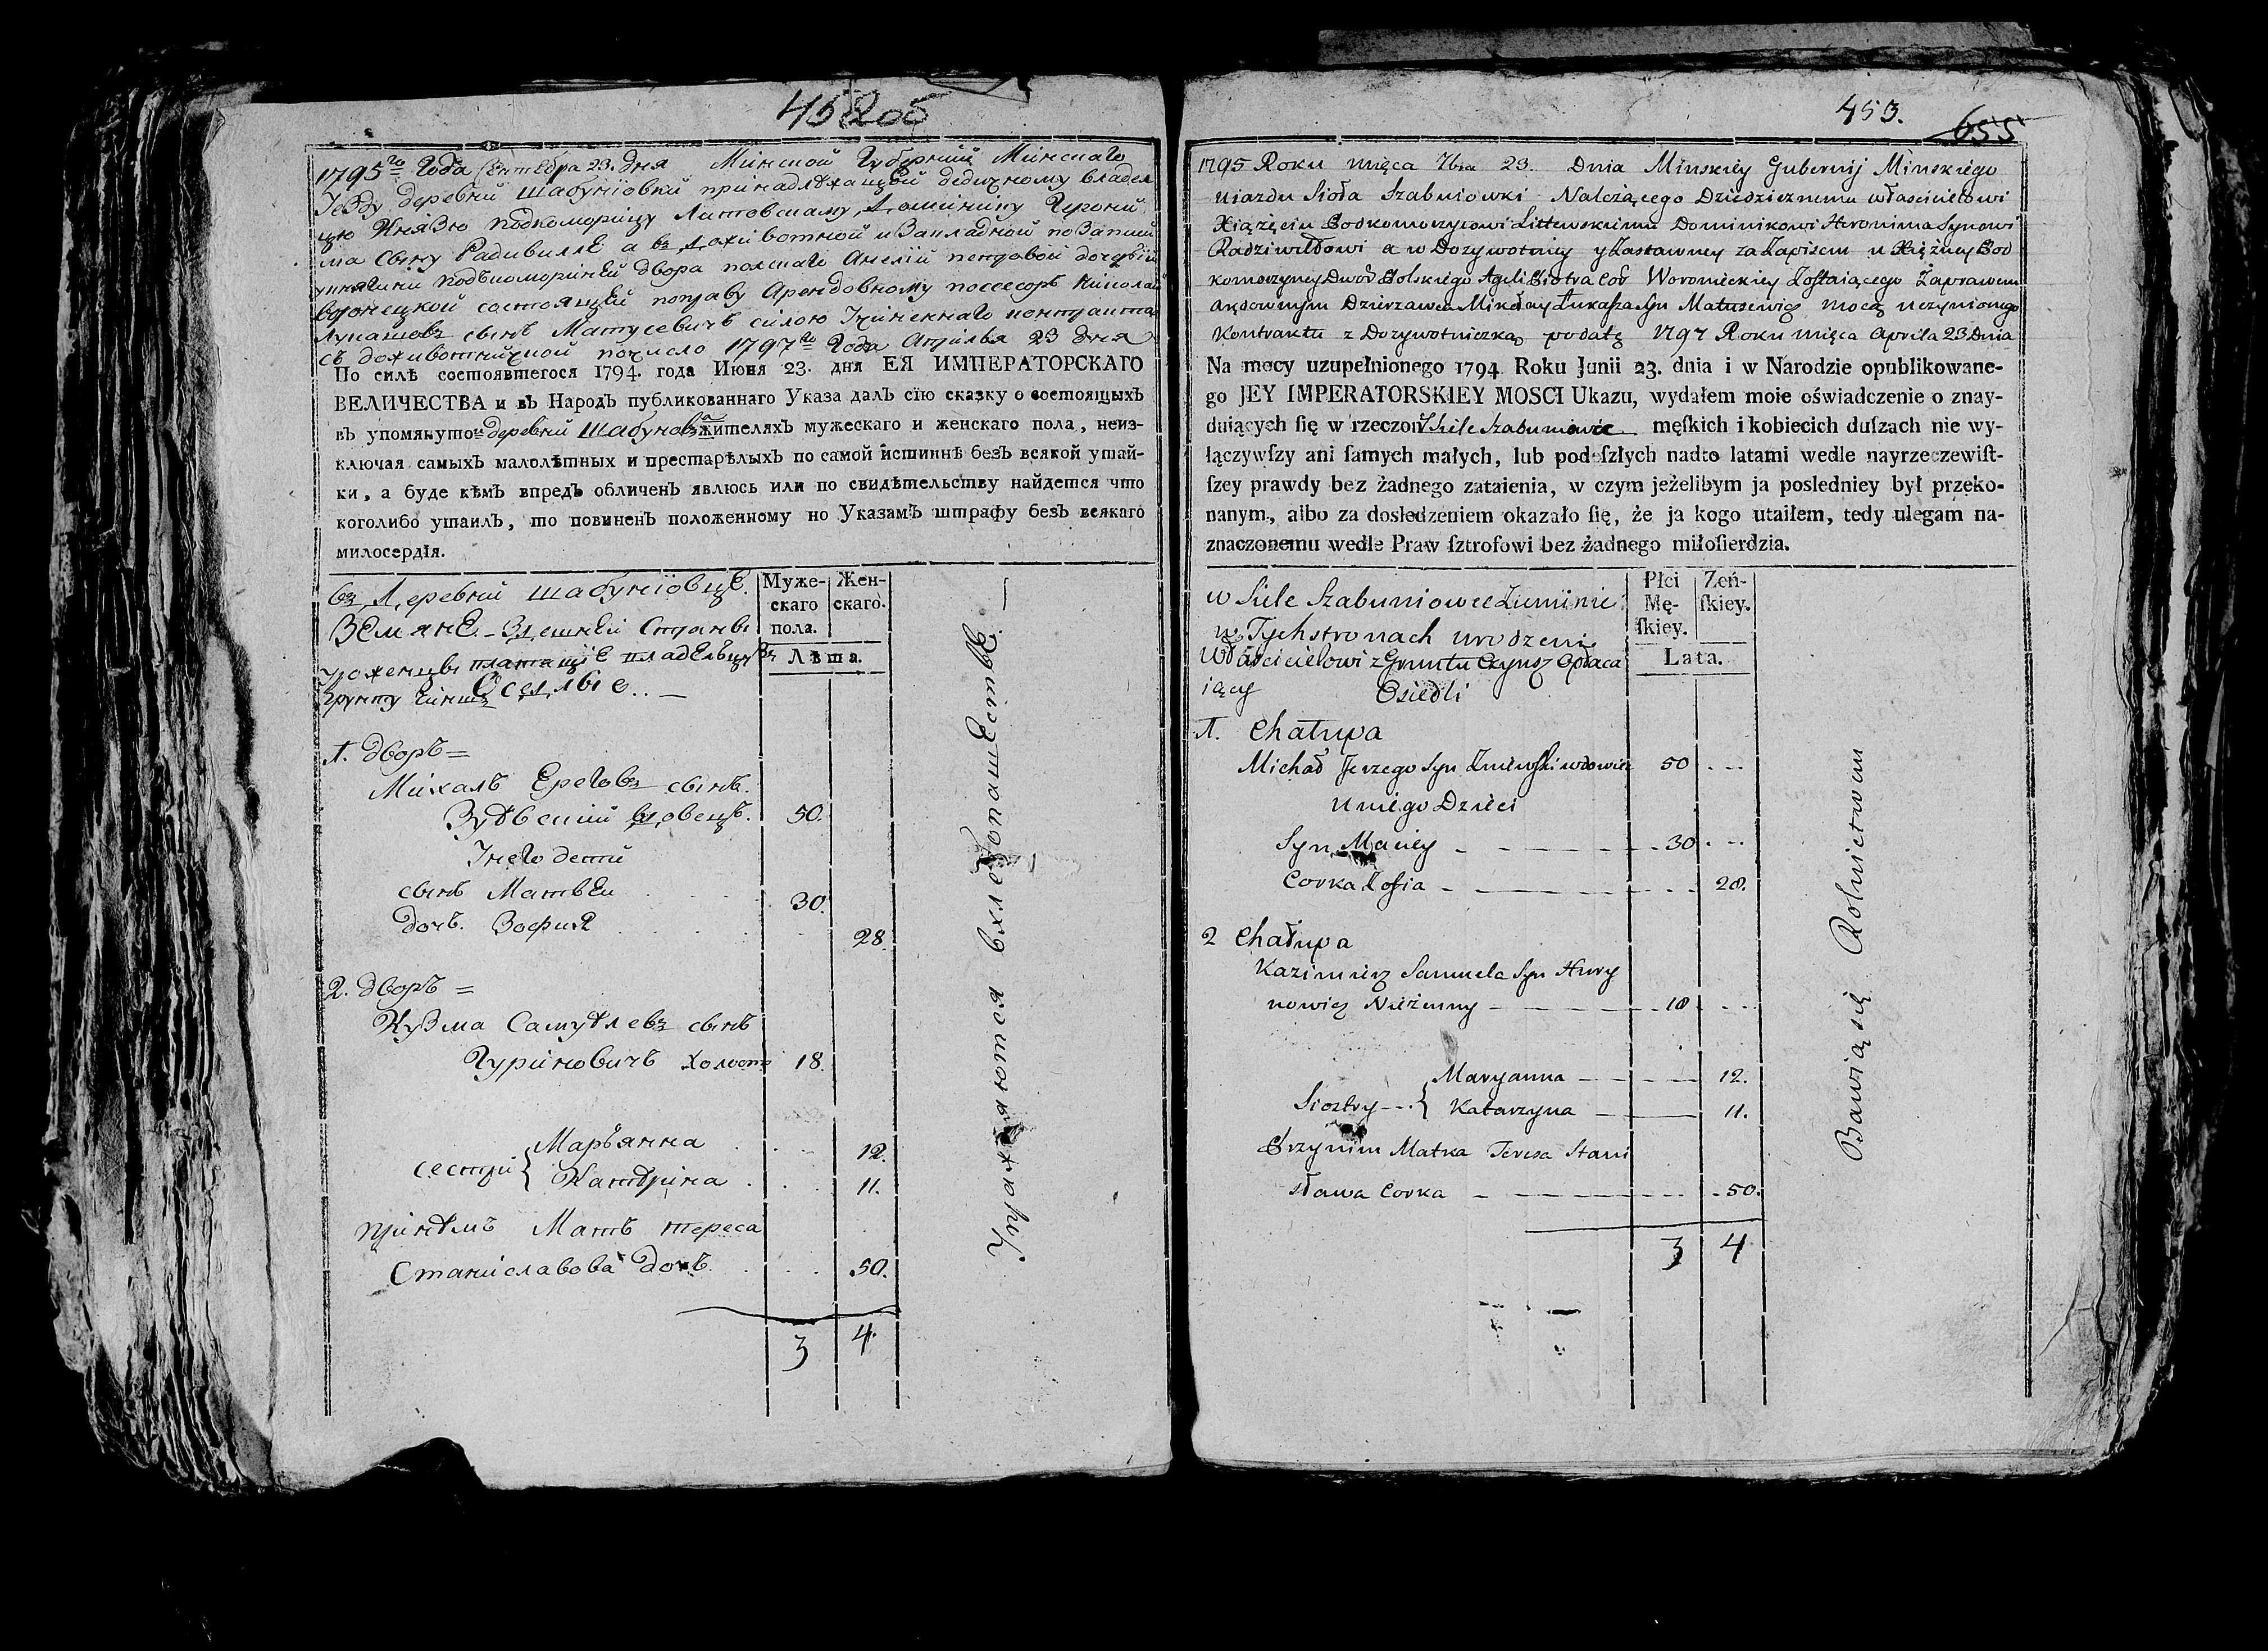 452об
1795го Года Сентебра 23. дня Минской Губерний Минскаго
Уезду деревни Шабуніовки принадлѣжащей дедичному владел
цю Князю подкоморицу Литовскаму, Доминику Героній
ма сыну Радивилле а въ доживотной и Закладной по Запий
княгини подъкоморіней двора полскаго Анелій пендовой дочерѣй
воронецкой состоящей поправу Арендовному поссесоръ Николай
Лукашовъ сынъ Матусевичъ силою Учиненнаго контракта
съ доживотничкой почисло 1797го Года Априля 23 дня
По силѣ состоявшегося 1794. года Июня 23. дня ЕЯ ИМПЕРАТОРСКАГО
ВЕЛИЧЕСТВА и въ Народъ публикованнаго Указа далъ сїю сказку о состоящыхъ
въ упомянутой деревни Шабуновка жителяхъ мужескаго и женскаго пола, неиз-
ключая самыхъ малолѣтныхъ и престарѣлыхъ по самой истиннѣ безъ всякой утай-
ки, а буде кѣмъ впредь обличенъ явлюсь или по свидѣтельству найдется что
коголибо утаилъ, то повиненъ положенному по Указамъ штрафу безъ всякаго
милосердїя.
въ Деревни шабуніовце.
Земяне здешней Страны
уроженцы платящіе владельцу Зъ
грунту чиншъ Оседлые
Муже-
скаго
пола.
Жен-
скаго.
Лѣта.
1. дворъ =
Михалъ Ереговъ сынъ
Зуѣвский вдовецъ. 50.
Унего дети
сынъ Матвей 30.
дочъ. Зофия 28.
2. дворъ =
Кузма Самуѣлевъ сынъ
Гуриновичъ холостъ 18.
сестри { Маръянна 12.
Катѣрина 11.
принѣмъ Матъ тереса
Станиславова дочъ. 50.
3 4.
Упражняются в хлебопашестве.
453.
655
1795 Roku mięca 7bra 23. Dnia Minskiey Gubernij Minskiego
ujazdu Sioła Szabuniowki Nalezącego Dziedzicznemu własciciełowi
Xiążęciu Podkomorzycowi Littewskiemu Dominikowi Heronima Synowi
Radziwiłłowi a w Dozywotniey y Zastawney za Zapisem u Xiężney Pod
komorzyney Dwod Polskiego Ageli Piotra Cor Woronieckiey Zostaiącego Zaprawem
arędownym Dzierzawca Mikołay Łukasza Syn Matusewicz mocą uczynionego
Kontraktu z Dozywotniczką podatę 1797 Roku mięca Aprila 23 Dnia
Na mocy uzupełnionego 1794 Roku Junii 23. dnia i w Narodzie opublikowane-
go JEY IMPERATORSKIEY MOSCI Ukazu, wydałem moie oświadczenie o znay-
duiących ſię w rzeczon Siele Szabuniowce męſkich i kobiecich duſzach nie wy-
łączywſzy ani ſamych małych, lub podeſzłych nadto latami wedle nayrzeczewiſt-
ſzey prawdy bez żadnego zataienia, w czym jeżelibym ja posledniey był przeko-
nanym, albo za dosledzeniem okazało ſię, że ja kogo utaiłem, tedy ulegam na-
znaczonemu wedle Praw ſztrofowi bez żadnego miłoſierdzia.
w Siele Szabuniowce Ziemianie
w Tych stronach urodzeni
Właścicielowi z Gruntu Czynsz Opłaca
iący Osiedli
Płci
Mę-
ſkiey.
Żeń-
ſkiey.
Lata.
1. Chałupa
Michał Jerzego Syn Zuiewski wdowiec 50
u niego Dzieci
Syn Maciey 30
Corka Zofia 28.
2 Chałupa
Kazimierz Samuela Syn Hury
nowicz Nieżenny 18
Siostry { Maryanna 12.
Katarzyna 11.
Przynim Matka Teresa Stani
sława Corka 50.
3 4
Bawią się Rolnictwem